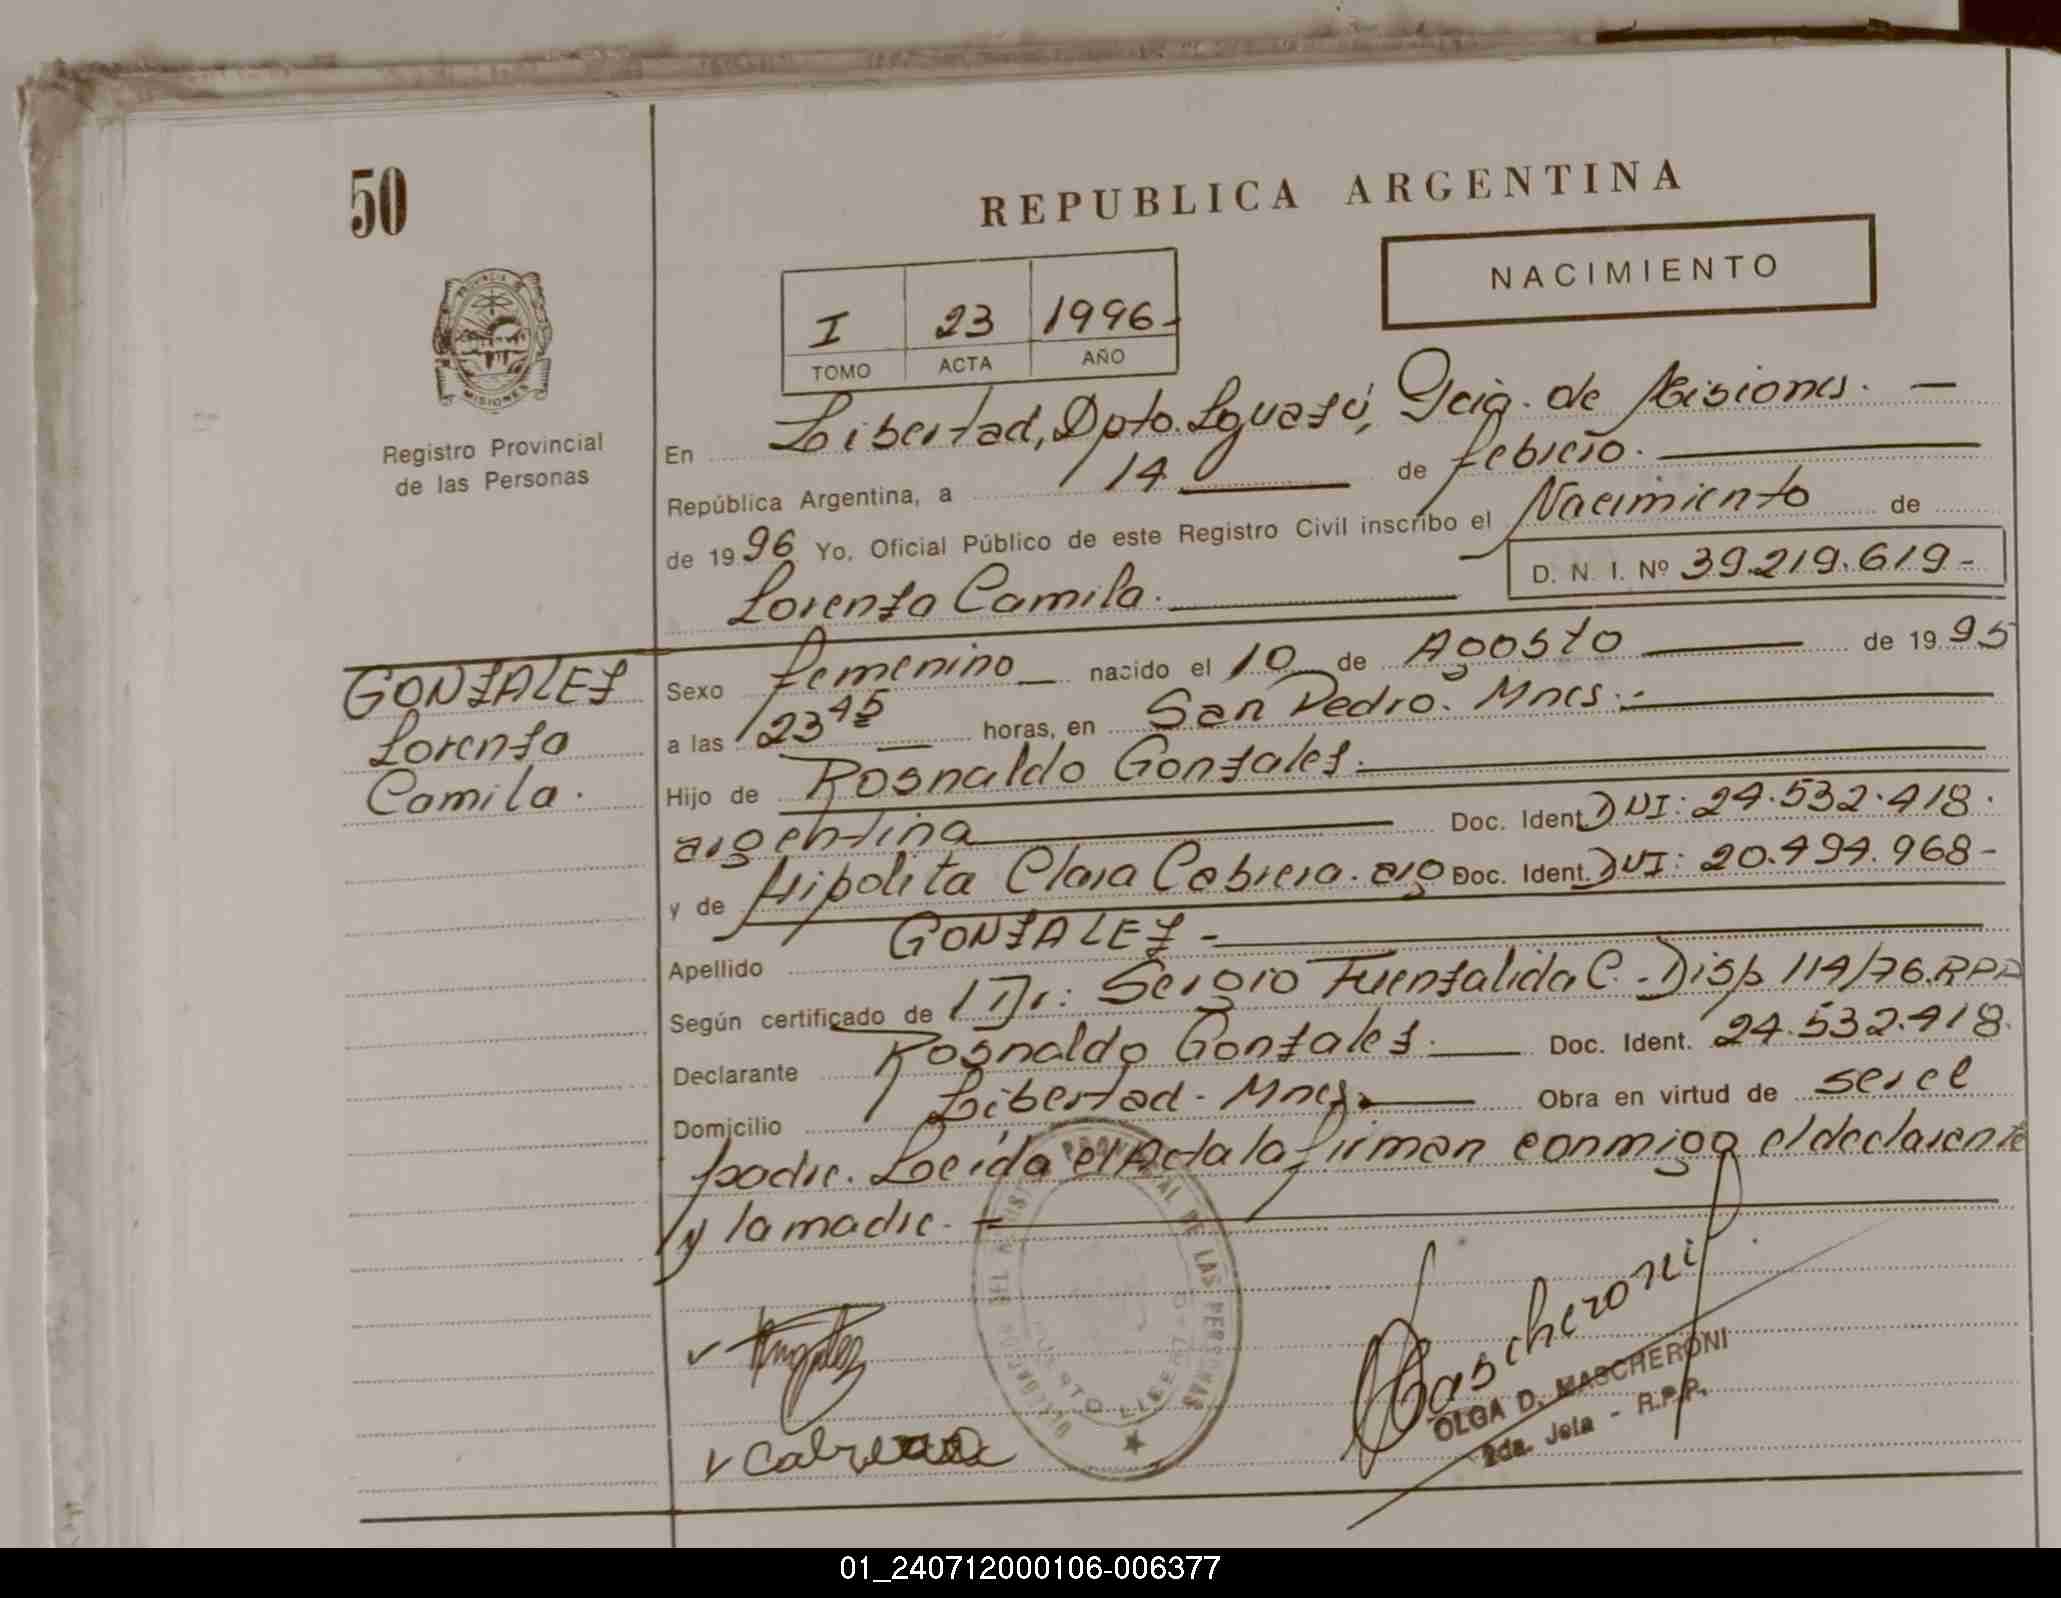 50
REPUBLICA ARGENTINA
NACIMIENTO
PROVINCIA DE
MISIONES
Registro Provincial
de las Personas
I 23 1996-
TOMO ACTA AÑO
En Libertad, Dpto. Iguazú, Pcia. de Misiones. —
República Argentina, a 14 de febrero.
de 19 96 Yo, Oficial Público de este Registro Civil inscribo el Nacimiento de
Lorenza Camila.
D. N. I. Nº 39.219.619-
GONZALEZ
Lorenza
Camila.
Sexo femenino nacido el 10 de Agosto de 19 95
a las 23 45 horas, en San Pedro. Mnes.-
Hijo de Rosnaldo Gonzalez.
argentina Doc. Ident. DNI: 24.532.418.
y de Hipolita Clara Cabrera. arg Doc. Ident. DNI: 20.494.968-
Apellido GONZALEZ -
Según certificado de Dr: Sergio Fuenzalida C. - Disp 114/76.RPP
Declarante Rosnaldo Gonzalez. Doc. Ident. 24.532.418.
Domicilio Libertad - Mnes. Obra en virtud de ser el
padre. Leída el Acta la firman conmigo el declarante
y la madre. -
Cabrera
Mascheroni
OLGA D. MASCHERONI
2da. Jefa - R.P.P.
PROVINCIAL DE LAS PERSONAS
PUERTO LIBERTAD
01_240712000106-006377